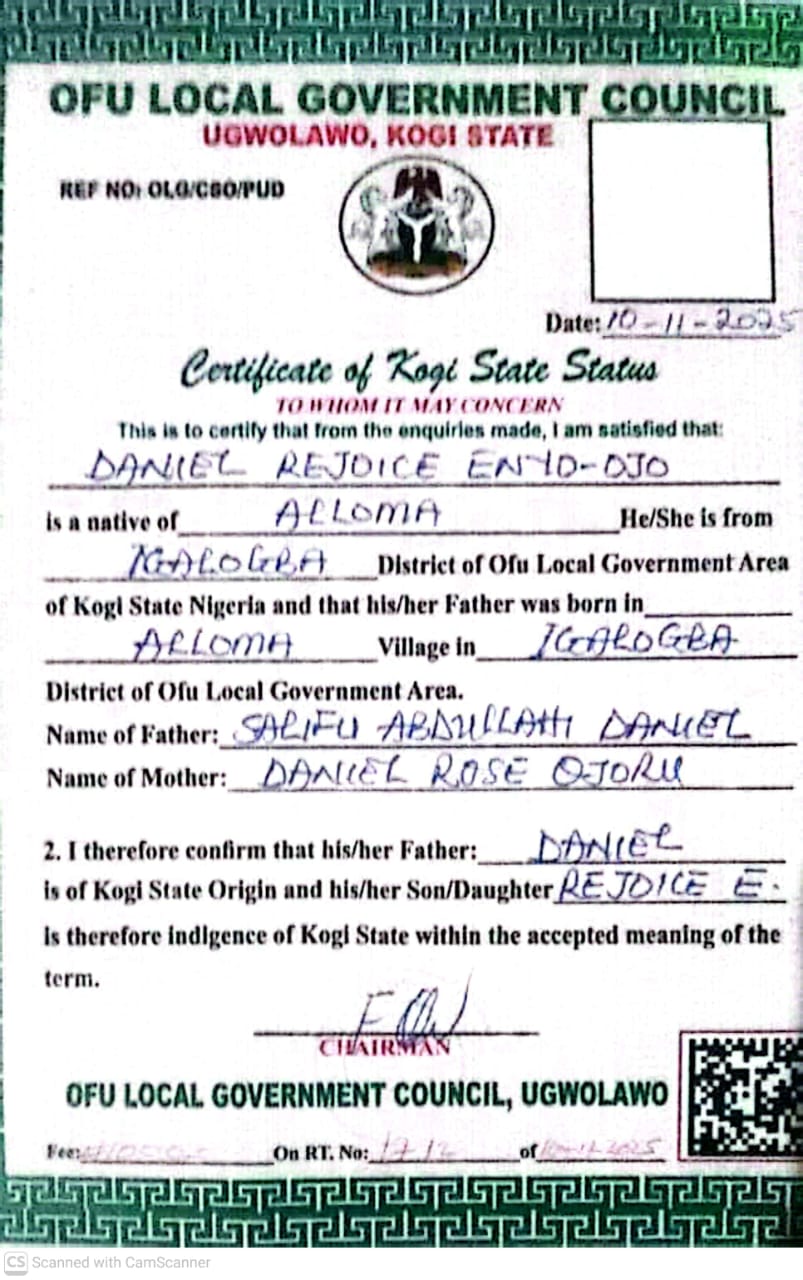 OFU LOCAL GOVERNMENT COUNCIL
UGWOLAWO, KOGI STATE
REF NO: OLG/CSO/PUD
Date: 10-11-2025
Certificate of Kogi State Status
TO WHOM IT MAY CONCERN
This is to certify that from the enquiries made, I am satisfied that:
DANIEL REJOICE ENYO-OJO
is a native of ALLOMA He/She is from
IGALOGBA District of Ofu Local Government Area
of Kogi State Nigeria and that his/her Father was born in
ALLOMA Village in IGALOGBA
District of Ofu Local Government Area.
Name of Father: SALIFU ABDULLAHI DANIEL
Name of Mother: DANIEL ROSE OJORU
2. I therefore confirm that his/her Father: DANIEL
is of Kogi State Origin and his/her Son/Daughter REJOICE E.
is therefore indigence of Kogi State within the accepted meaning of the
term.
CHAIRMAN
OFU LOCAL GOVERNMENT COUNCIL, UGWOLAWO
Fee: On RT. No: 1712 of 10-11-2025
CS Scanned with CamScanner